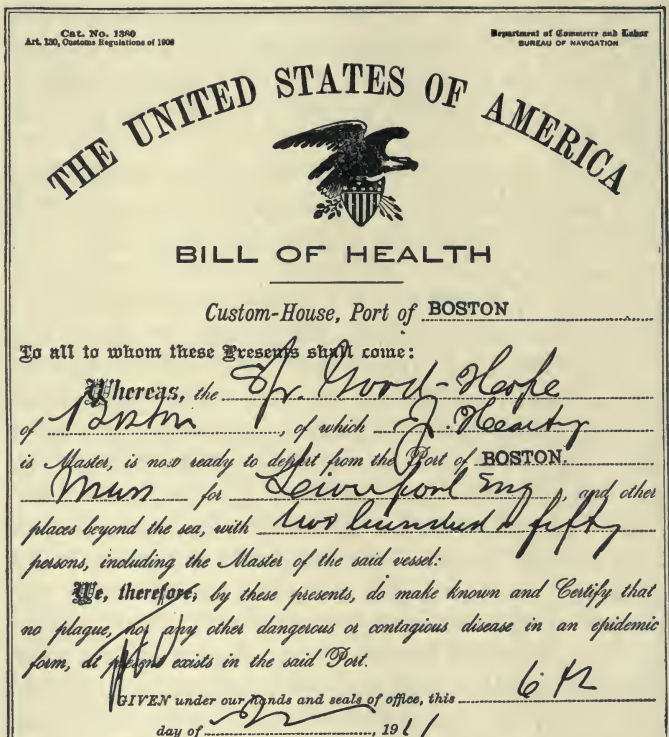 Cat. No. 1380
Art. 130, Customs Regulations of 1908
Department of Commerce and Labor
BUREAU OF NAVIGATION
THE UNITED STATES OF AMERICA
BILL OF HEALTH
Custom-House, Port of BOSTON
To all to whom these Presents shall come:
Whereas, the Sr. Good-Hope
of Boston, of which J. Hearty
is Master, is now ready to depart from the Port of BOSTON.
for Liverpool Eng, and other
places beyond the sea, with two hundred & fifty
persons, including the Master of the said vessel:
We, therefore, by these presents, do make known and Certify that
no plague, nor any other dangerous or contagious disease in an epidemic
form, at present exists in the said Port.
GIVEN under our hands and seals of office, this 6th
day of, 1911